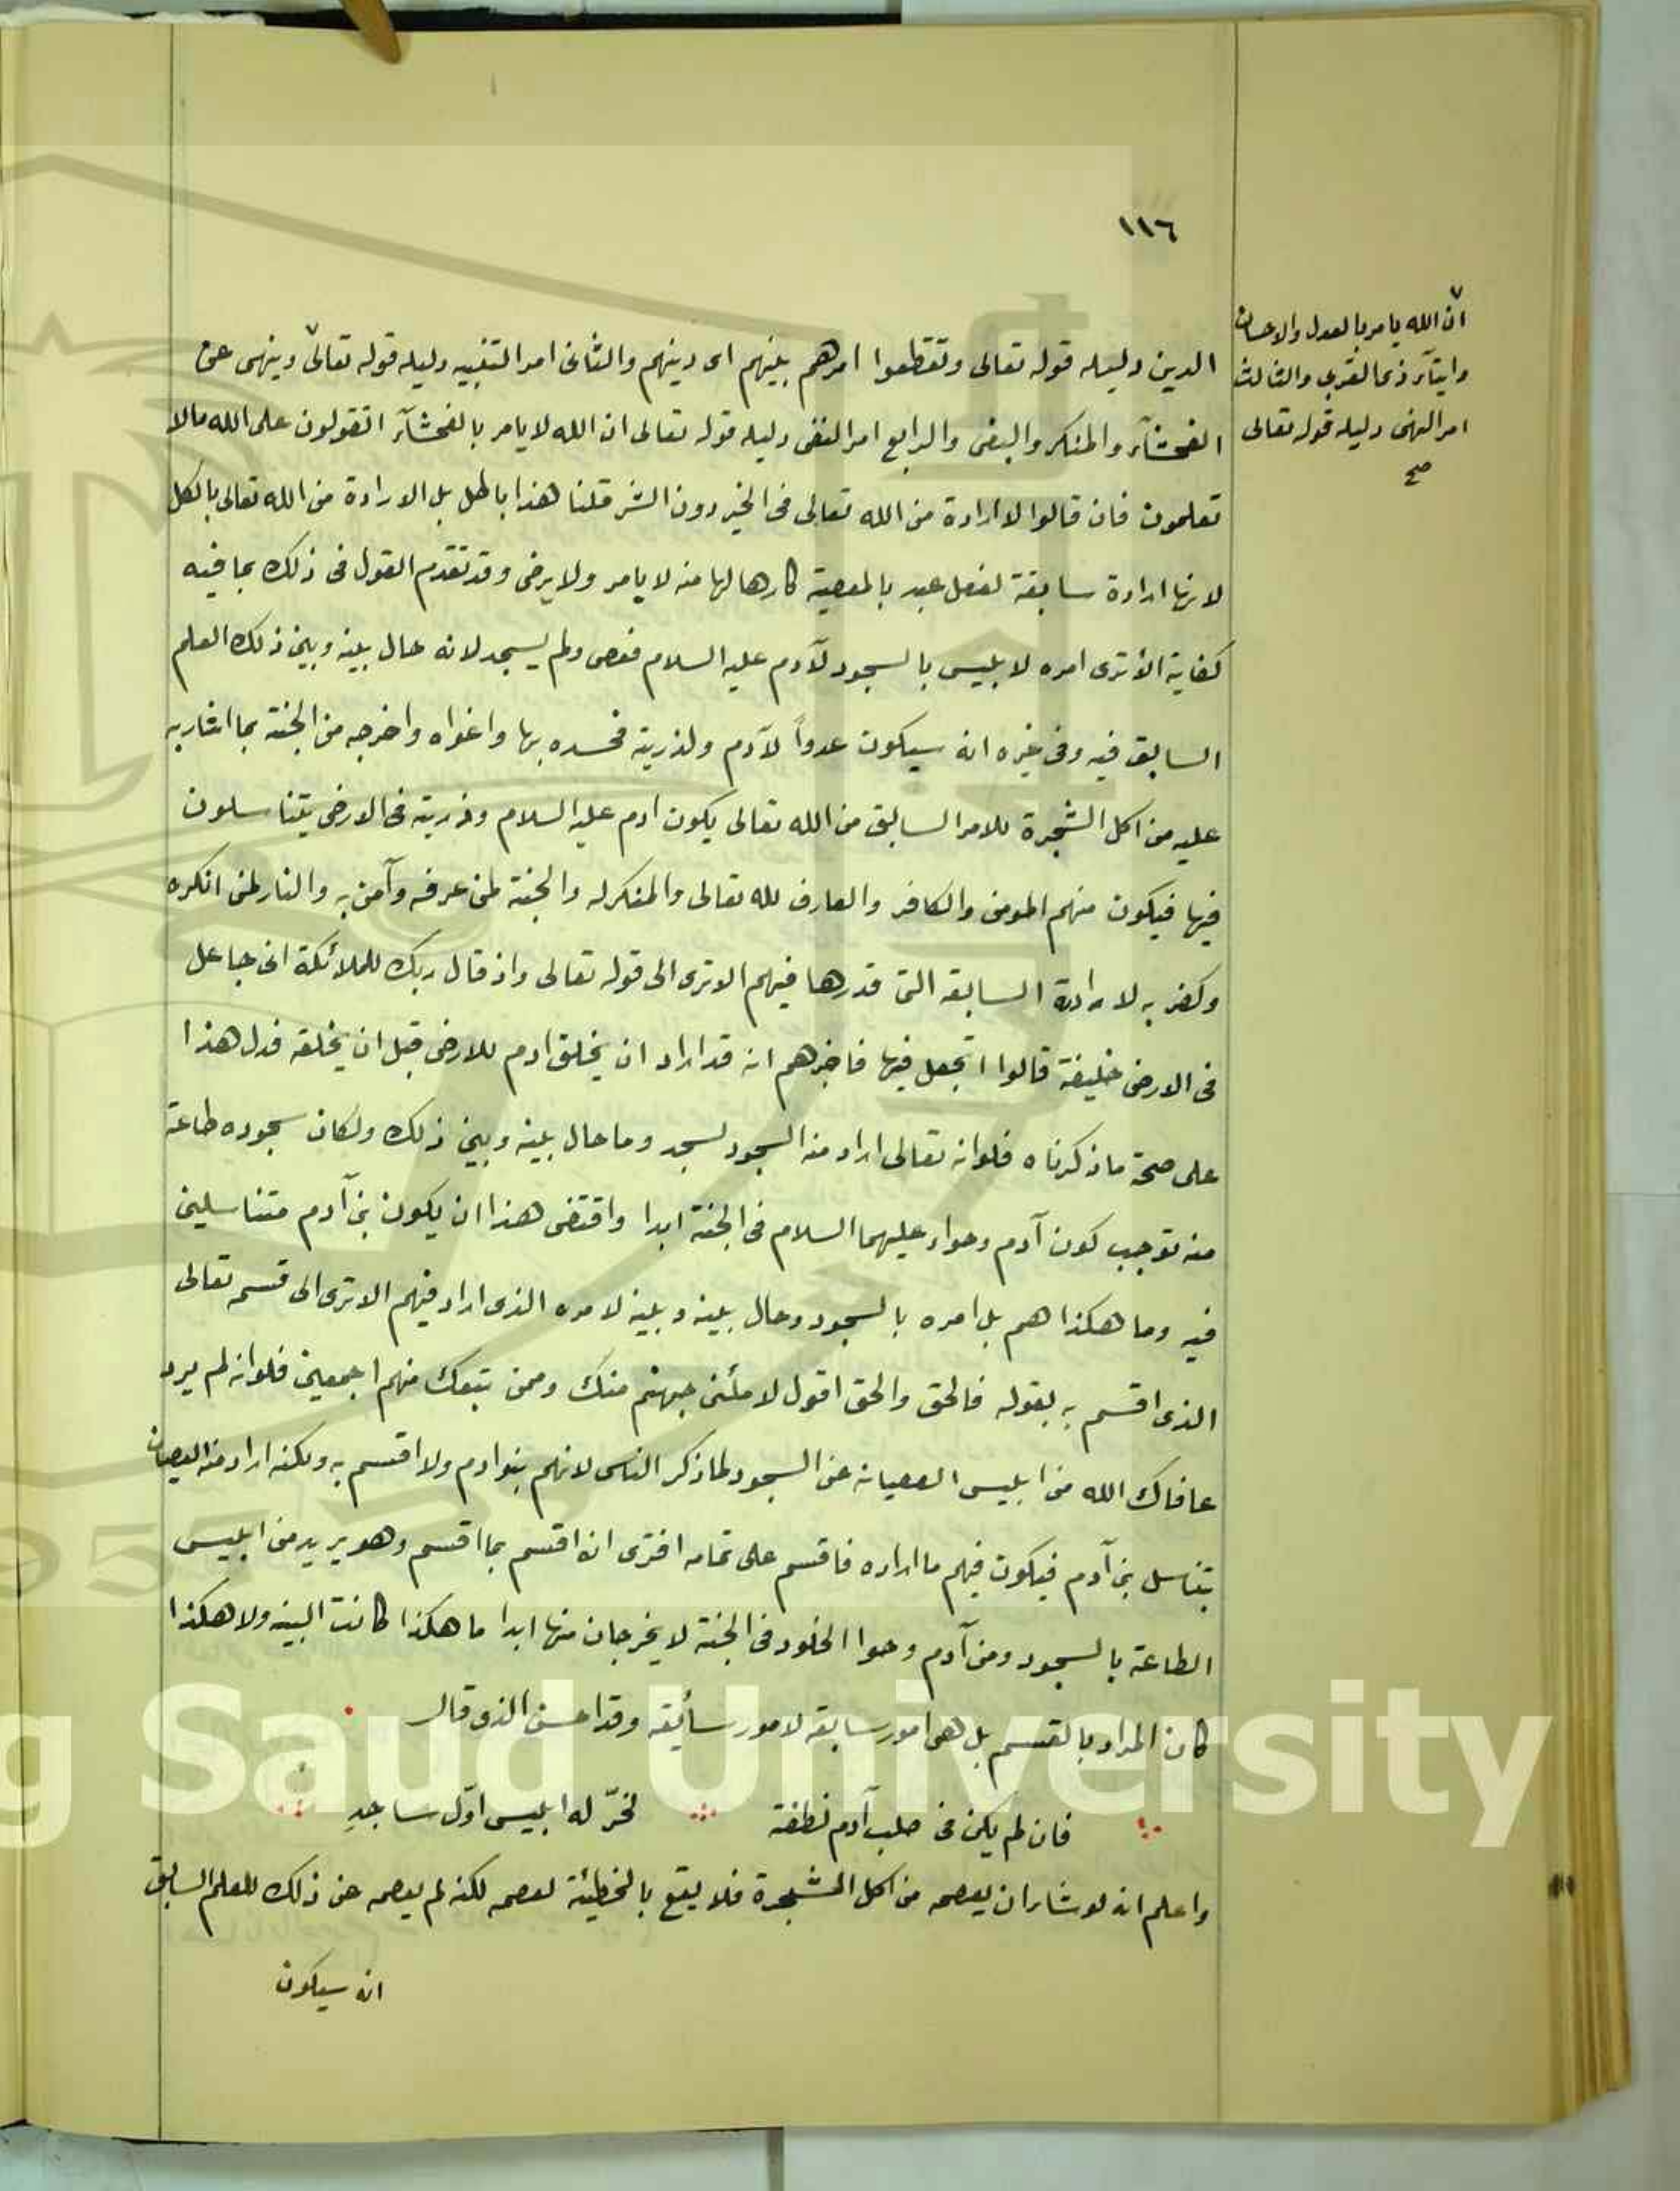 ١١٦
ان الله يامر بالعدل والاحسان
وايتآء ذى القربى والثالث
امر النهى دليله قوله تعالى
صح
الدين دليله قوله تعالى وتقطعوا امرهم بينهم اى دينهم والثانى امر التنبيه دليله قوله تعالى وينهى عن
الفحشآء والمنكر والبغى والرابع امر النفى دليله قوله تعالى ان الله لا يامر بالفحشآء اتقولون على الله مالا
تعلمون فان قالوا لا ارادة من الله تعالى فى الخير دون الشر قلنا هذا باطل بل الارادة من الله تعالى بالكل
لانها ارادة سابقة لفعل عبد بالمعصية كارها لها منه لا يامر ولا يرضى وقد تقدم القول فى ذلك بما فيه
كفاية الا ترى امره لابليس بالسجود لآدم عليه السلام فعصى ولم يسجد لانه حال بينه وبين ذلك العلم
السابق فيه وفى غيره انه سيكون عدواً لآدم ولذريته فحسده بها واغواه واخرجه من الجنة بما اشار به
عليه من اكل الشجرة للامر السابق من الله تعالى يكون ادم عليه السلام وذريته فى الارض يتناسلون
فيها فيكون منهم المومن والكافر والعارف لله تعالى والمنكر له والجنة لمن عرفه وآمن به والنار لمن انكره
وكفر به لارادة السابقه التى قدرها فيهم الا ترى الى قوله تعالى واذ قال ربك للملائكة انى جاعل
فى الارض خليفة قالوا اتجعل فيها فاخبرهم انه قد اراد ان يخلق ادم للارض قبل ان يخلقه فدل هذا
على صحة ما ذكرناه فلو انه تعالى اراد منه السجود لسجد وما حال بينه وبين ذلك ولكان سجوده طاعة
منه توجب كون آدم وحواء عليهما السلام فى الجنة ابدا واقتضى هذا ان يكون بنى آدم متناسلين
فيه وما هكذا هم بل امره بالسجود وحال بينه وبينه لامره الذى اراد فيهم الا ترى الى قسمه تعالى
الذى اقسم به بقوله فالحق والحق اقول لاملئن جهنم منك وممن تبعك منهم اجمعين فلو انه لم يرد
عافاك الله من ابليس العصيانه عن السجود لما ذكر الناس لانهم بنو ادم ولا اقسم به ولكنه اراد منه العصيان
بتناسل بنى آدم فيكون فيهم ما اراده فاقسم على تمامه افترى انه اقسم بما اقسم وهو يريد من ابليس
الطاعة بالسجود ومن آدم وحوا الخلود فى الجنة لا يخرجان منها ابدا ما هكذا كانت البينه ولا هكذا
كان المراد بالقسم بل هى امور سابقه لامور سأيقه وقد احسن الذى قال
فان لم يكن فى صلب آدم نطفة لخرّ له ابليس اوّل ساجدِ
واعلم انه لو شاء ان يعصمه من اكل الشجرة فلا يقع بالخطيئة لعصمه لكنه لم يعصمه عن ذلك للعلم السابق
انه سيكون